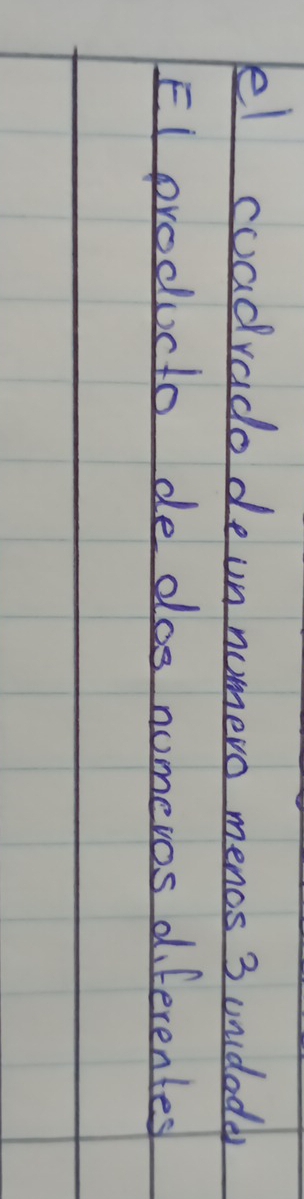 el cuadrado de un numero menos 3 unidades
El producto de dos numeros diferentes